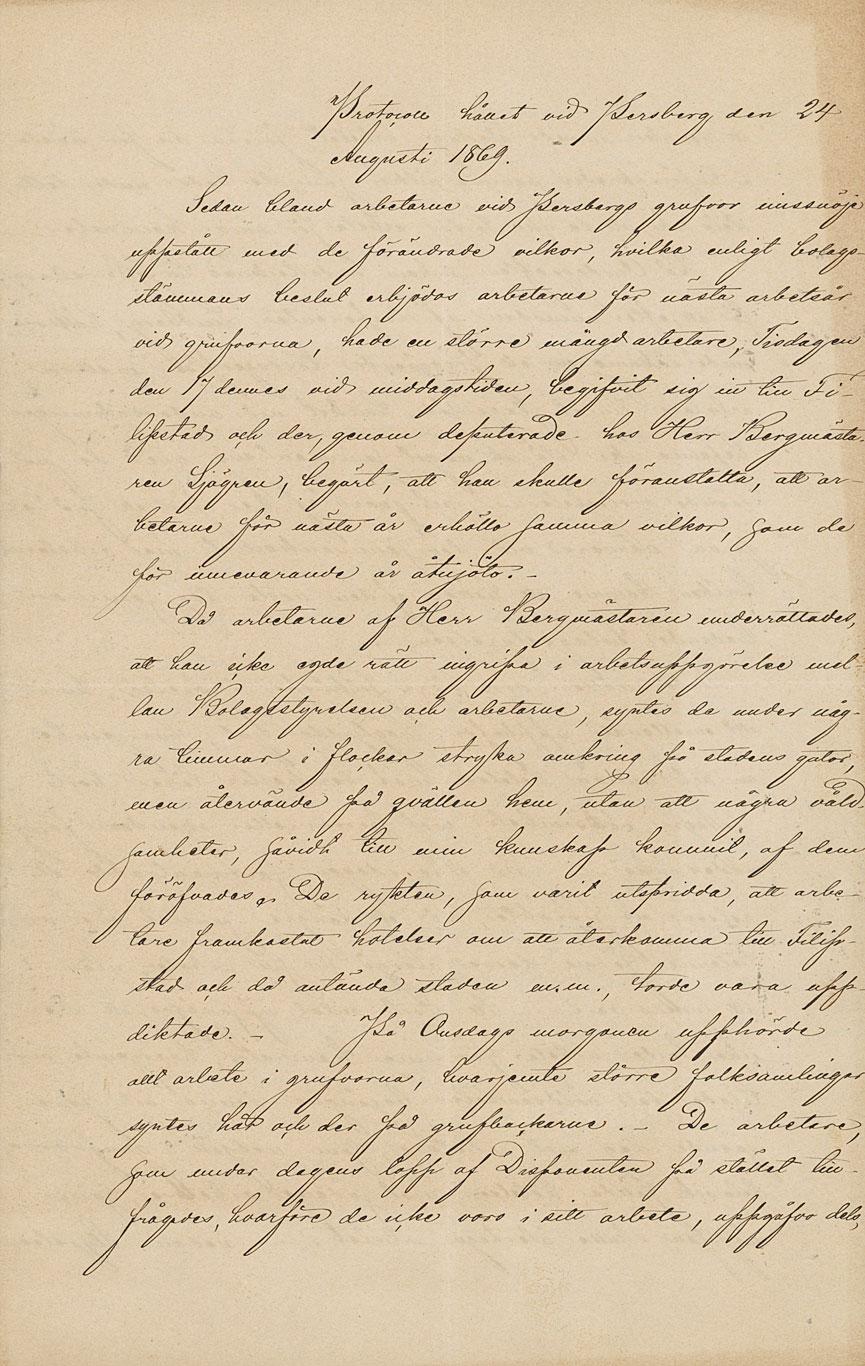 Protocoll hållet vid Persberg den 24
Augusti 1869.
Sedan bland arbetarne vid Persbergs grufvor missnöje
uppstått med de förändrade vilkor, hvilka enligt bolags-
stämmans beslut erbjödos arbetarne för nästa arbetsår
vid grufvorna, hade en större mängd arbetare, Tisdagen
den 17 dennes vid middagstiden, begifvit sig in till Fi-
lipstad och der, genom deputerade hos Herr Bergmästa-
ren Sjögren, begärt, att han skulle föranstalta, att ar-
betarne för nästa år erhöllo samma vilkor, som de
för innevarande år åtnjöto. -
Då arbetarne af Herr Bergmästaren underrättades,
att han icke egde rätt ingripa i arbetsuppgörelse mel-
lan Bolagsstyrelsen och arbetarne, syntes de under någ-
ra timmar i flockar stryka omkring på stadens gator,
men återvände på qvällen hem, utan att några våld-
samheter, såvidt till min kunskap kommit, af dem
föröfvades. De rykten, som varit utspridda, att arbe-
tare framkastat hotelser om att återkomma till Filip-
stad och då antända staden m.m., torde vara upp-
diktade. - På Onsdags morgonen upphörde
allt arbete i grufvorna, hvarjemte större folksamlingar
syntes här och der på grufbackarne. - De arbetare,
som under dagens lopp af Disponenten på stället till-
frågades, hvarföre de icke voro i sitt arbete, uppgåfvo dels,